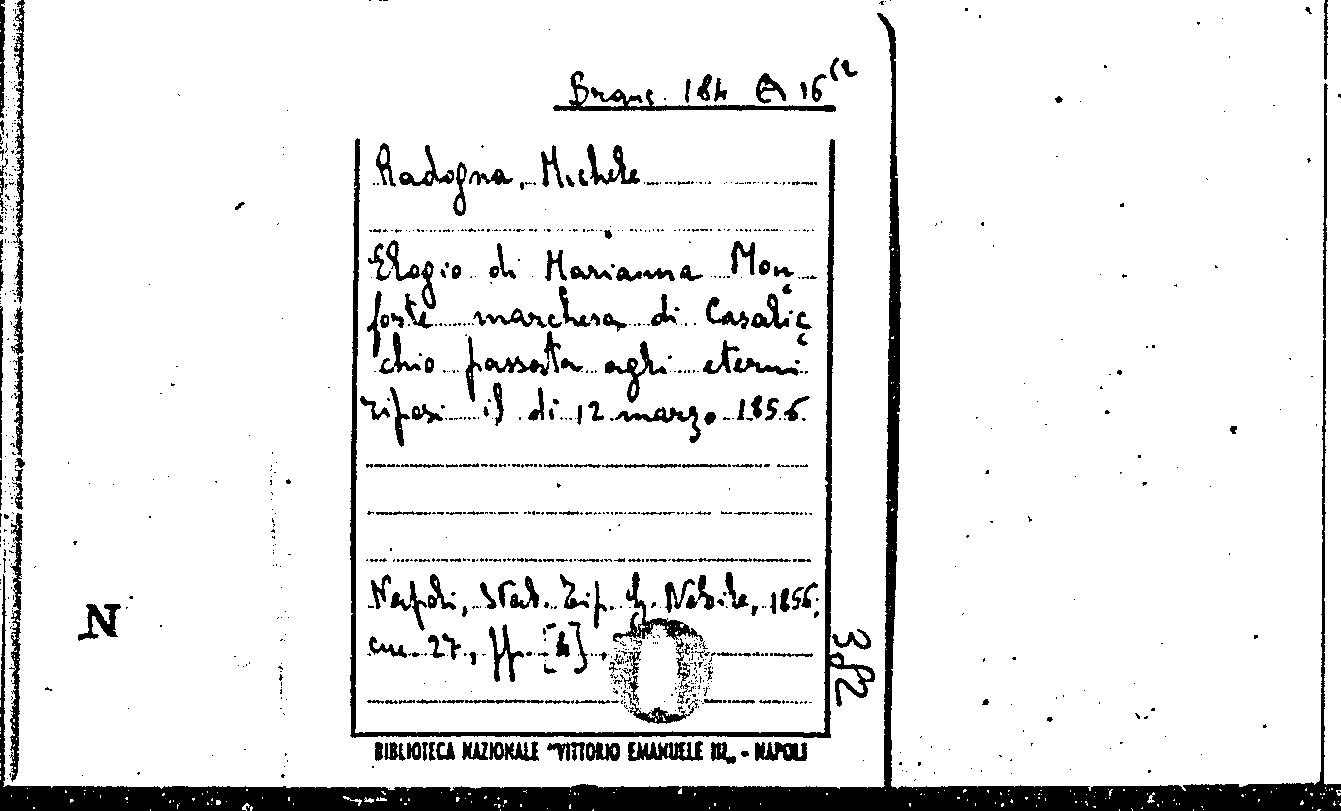 Branc. 184 A 16 12
Radogna, Michele
Elogio di Marianna Mon
forte marchesa di Casalic
chio passata agli eterni
riposi il di 12 marzo 1856
Napoli, Stab. Tip. G. Nobile, 1856;
cm. 27, pp. [4].
382
N
BIBLIOTECA NAZIONALE "VITTORIO EMANUELE III„ - NAPOLI